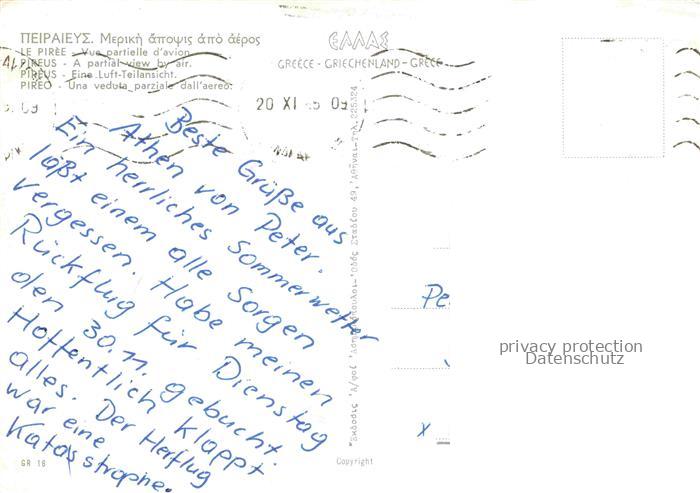 ΠΕΙΡΑΙΕΥΣ. Μερική ἄποψις ἀπό ἀέρος
LE PIRÉE - Vue partielle d'avion.
PIREUS - A partial view by air.
PIRÄUS - Eine Luft-Teilansicht.
PIREO - Una veduta parziale dall'aereo.
ΕΛΛΑΣ
GREECE - GRIECHENLAND - GRÈCE
20 XI
Beste Grüße aus
Athen von Peter.
Ein herrliches Sommerwetter
läßt einem alle Sorgen
vergessen. Habe meinen
Rückflug für Dienstag
den 30.11. gebucht.
Hoffentlich klappt
alles. Der Herflug
war eine
Katasstrophe.
Pe
x
privacy protection
Datenschutz
GR 16
Copyright